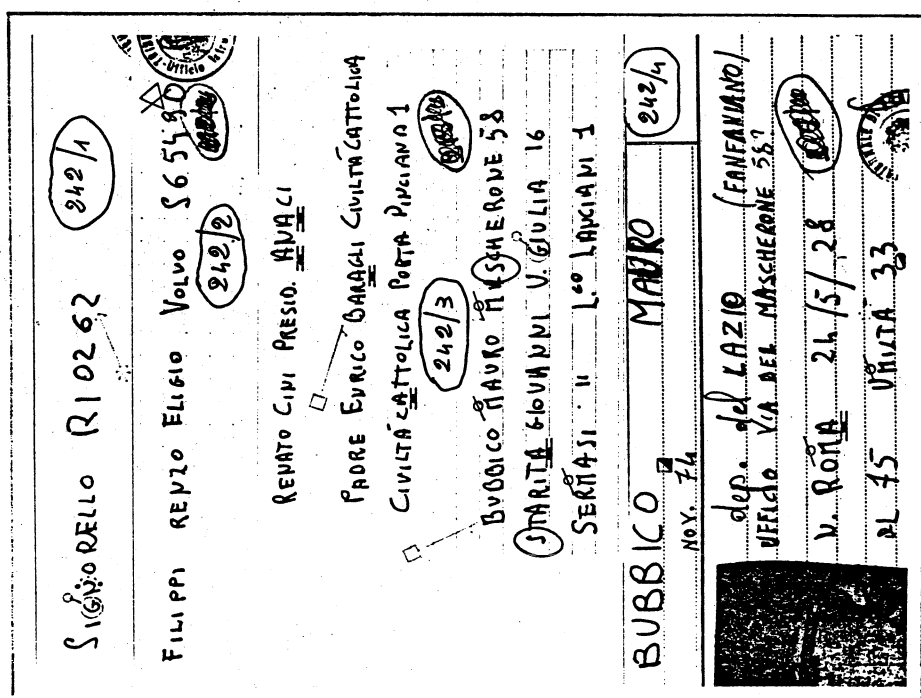 242/1
SIGNORELLO RI 0262
FILIPPI RENZO ELIGIO VOLVO S65490
242/2
RENATO CINI PRESID. ANACI
PADRE ENRICO BARAGLI CIVILTÀ CATTOLICA
CIVILTÀ CATTOLICA PORTA PINCIANA 1
242/3
BUBBICO MAURO MASCHERONE 58
STARITA GIOVANNI V. GIULIA 16
SERMASI " L.GO LANCIANI 1
BUBBICO MAURO 242/4
NOV. 74
dep. del LAZIO (FANFANIANO)
UFFICIO VIA DEL MASCHERONE 58?
N. ROMA 24/5/28
AL 75 UMILTÀ 33